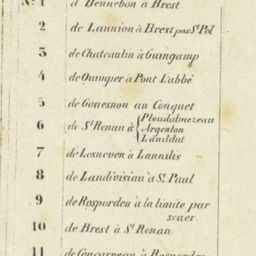 N.° 1 d'Hennebon à Brest
2 de Lannion à Brest par St Pol
3 de Chateaulin à Guingamp
4 de Quimper à Pont L'abbé
5 de Gouesnon au Conquet
6 de St Renan à { Ploudalmezeau
Argenton
Landdut
7 de Lesneven à Lannilis
8 de Landivisiau à St Paul
9 de Rosporden à la limite par
scaer.
10 de Brest à St Renan
11 de Concarneau à Rosporden